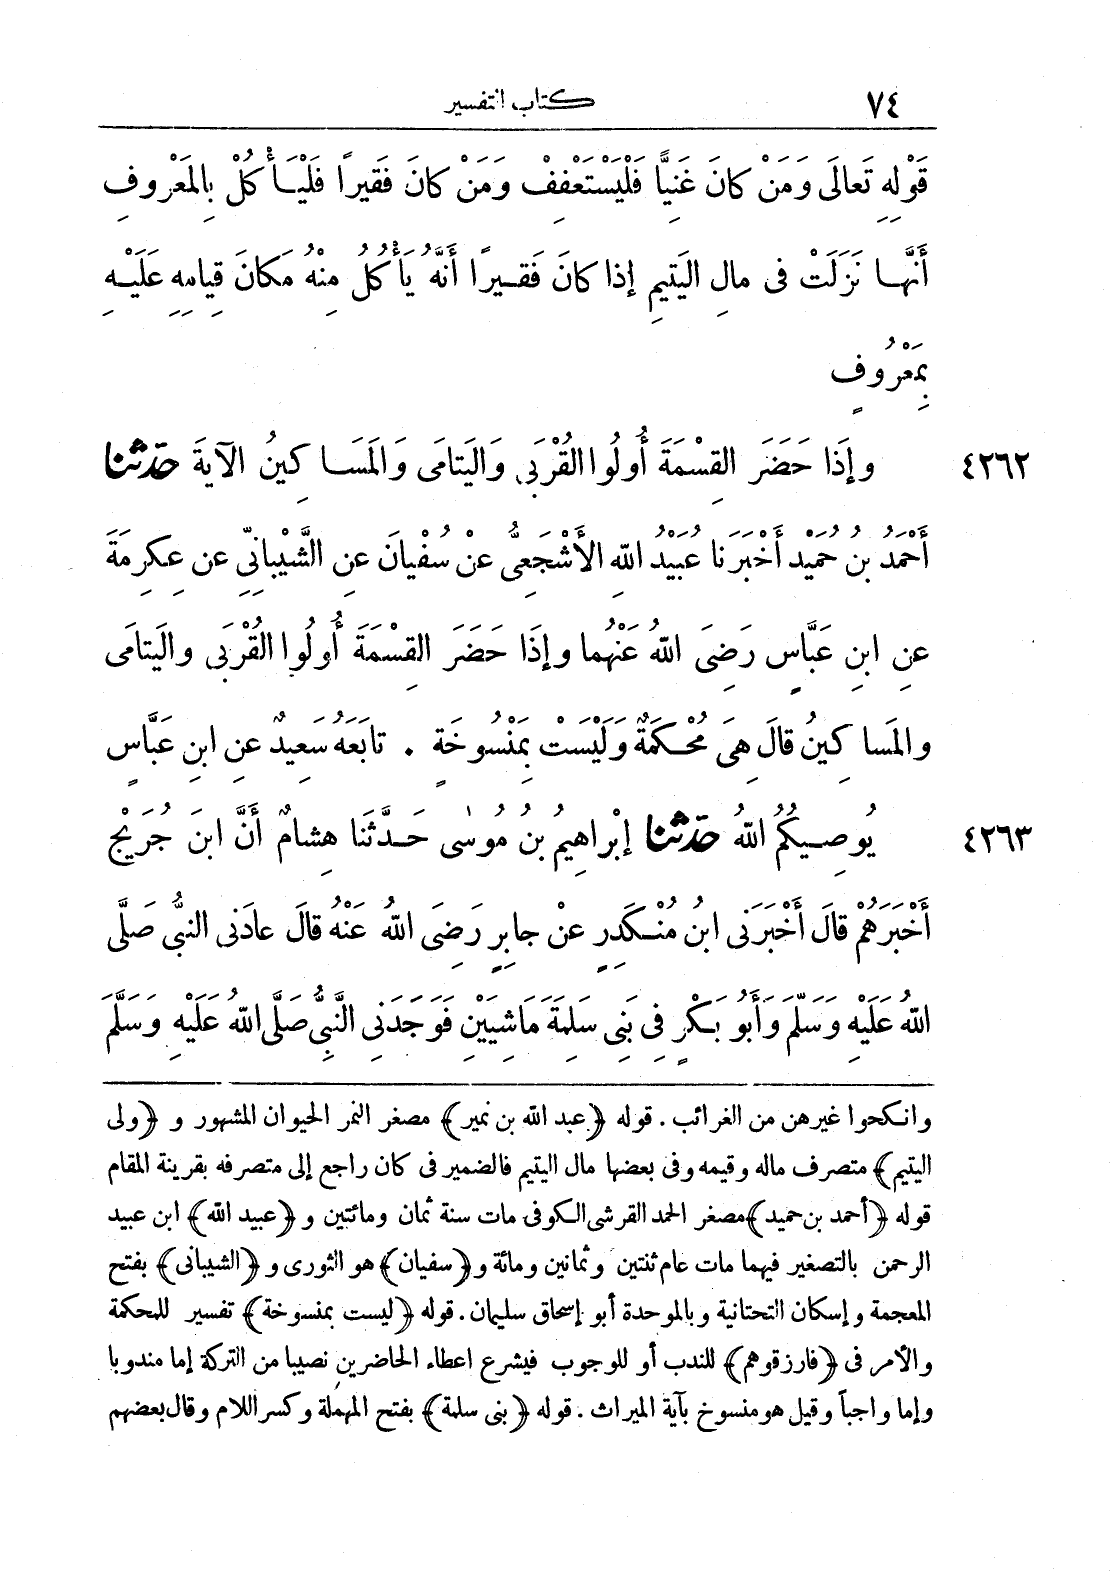 ٧٤ كتاب التفسير
قَوْلِهِ تَعَالَى وَمَنْ كانَ غَنِيًّا فَلْيَسْتَعْفِفْ وَمَنْ كانَ فَقِيرًا فَلْيَأْكُلْ بِالمَعْرُوفِ
أَنَّها نَزَلَتْ فى مالِ اليَتِيمِ إذا كانَ فَقِيرًا أَنَّهُ يَأْكُلُ مِنْهُ مَكانَ قِيامِهِ عَلَيْهِ
بِمَعْرُوفٍ
٤٢٦٢ وإذَا حَضَرَ القِسْمَةَ أُولُوا القُرْبَى وَاليَتامَى وَالمَساكِينُ الآيةَ حدّثنا
أَحْمَدُ بنُ حُمَيْدٍ أَخْبَرَنا عُبَيْدُ اللهِ الأَشْجَعِىُّ عنْ سُفْيانَ عنِ الشَّيْبانِىّ عن عِكرِمَةَ
عنِ ابنِ عَبَّاسٍ رَضِىَ اللهُ عَنْهُما وإذَا حَضَرَ القِسْمَةَ أُولُوا القُرْبَى واليَتامَى
والمَساكِينُ قالَ هِىَ مُحْكَمَةٌ وَلَيْسَتْ بِمَنْسُوخَةٍ . تابَعَهُ سَعِيدٌ عنِ ابنِ عَبَّاسٍ
٤٢٦٣ يُوصِيكُمُ اللهُ حدّثنا إبْراهِيمُ بنُ مُوسٰى حَدَّثَنا هِشامٌ أَنَّ ابنَ جُرَيْجٍ
أَخْبَرَهُمْ قالَ أَخْبَرَنى ابنُ مُنْكَدِرٍ عنْ جابِرٍ رَضِىَ اللهُ عَنْهُ قالَ عادَنى النبىُّ صَلَّى
اللهُ عَلَيْهِ وَسَلَّمَ وَأَبُو بَكْرٍ فِى بَنِى سَلِمَةَ مَاشِيَيْنِ فَوَجَدَنِى النَّبِىُّ صَلَّى اللهُ عَلَيْهِ وَسَلَّمَ
وانكحوا غيرهن من الغرائب . قوله ﴿عبد الله بن نمير﴾ مصغر النمر الحيوان المشهور و ﴿ولى
اليتيم﴾ متصرف ماله وقيمه وفى بعضها مال اليتيم فالضمير فى كان راجع إلى متصرفه بقرينة المقام
قوله ﴿أحمد بن حميد﴾ مصغر الحمد القرشى الكوفى مات سنة ثمان ومائتين و ﴿عبيد الله﴾ ابن عبيد
الرحمن بالتصغير فيهما مات عام ثنتين وثمانين ومائة و ﴿سفيان﴾ هو الثورى و ﴿الشيبانى﴾ بفتح
المعجمة وإسكان التحتانية وبالموحدة أبو إسحاق سليمان . قوله ﴿ليست بمنسوخة﴾ تفسير للمحكمة
والأمر فى ﴿فارزقوهم﴾ للندب أو للوجوب فيشرع اعطاء الحاضرين نصيبا من التركة إما مندوبا
وإما واجباً وقيل هو منسوخ بآية الميراث . قوله ﴿بنى سلمة﴾ بفتح المهملة وكسر اللام وقال بعضهم